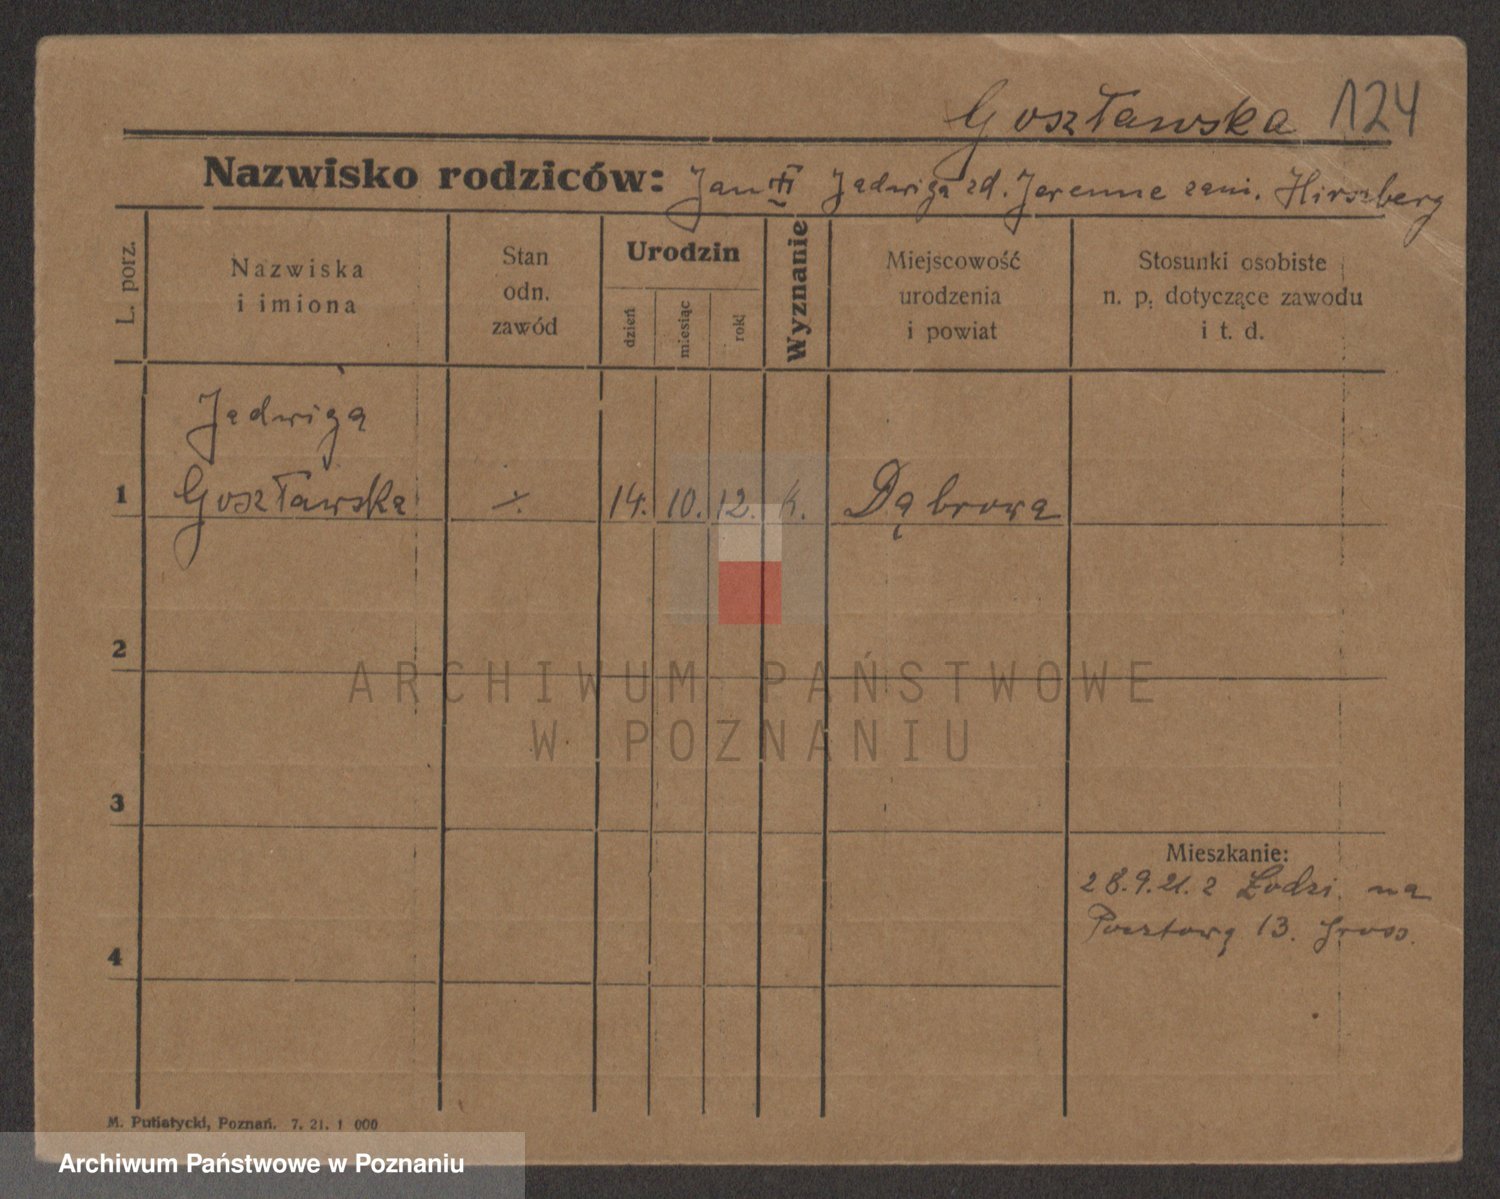 Goszławska 124
Nazwisko rodziców: Jan Jadwiga zd. Jerenne zam. Hirszberg
L. porz.
Nazwiska
i imiona
Stan
odn.
zawód
Urodzin
dzień
miesiąc
rok
Wyznanie
Miejscowość
urodzenia
i powiat
Stosunki osobiste
n. p. dotyczące zawodu
i t. d.
Jadwiga
1 Goszławska ./. 14. 10. 12. k. Dąbrowa
2
ARCHIWUM PAŃSTWOWE
W POZNANIU
3
Mieszkanie:
28.9.21. z Łodzi na
Pocztową 13.
4
M. Putiatycki, Poznań. 7. 21. 1 000
Archiwum Państwowe w Poznaniu